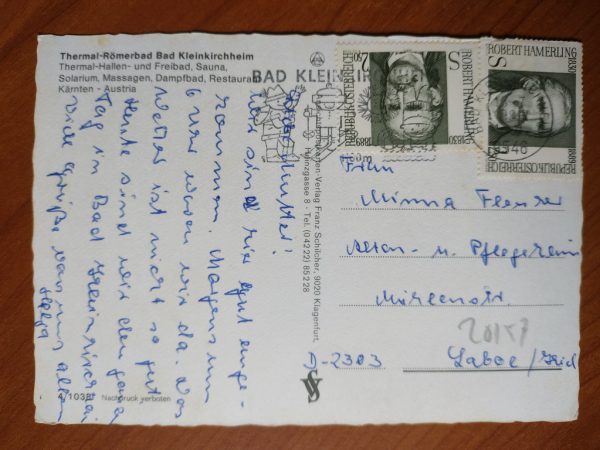 Thermal-Römerbad Bad Kleinkirchheim
Thermal-Hallen- und Freibad, Sauna,
Solarium, Massagen, Dampfbad, Restaurant
Kärnten - Austria
BAD KLEINKIRCH
ROBERT HAMERLING
1830
1889
S
REPUBLIK ÖSTERREICH
ROBERT HAMERLING
1830
1889
S
REPUBLIK ÖSTERREICH
9546
Mutter!
wir sind hier gut ange-
kommen. Morgens um
6 Uhr waren wir da. Das
Wetter ist nicht so gut
Heute sind wir den ganzen
Tag in Bad
viele Grüße von uns allen
Verlag Franz Schilcher, 9020 Klagenfurt,
Hainzgasse 8 - Tel. (04222) 85228
Frau
Minna
Alten- u. Pflegeheim
D-2303
Laboe/Kiel
4/1038
Nachdruck verboten